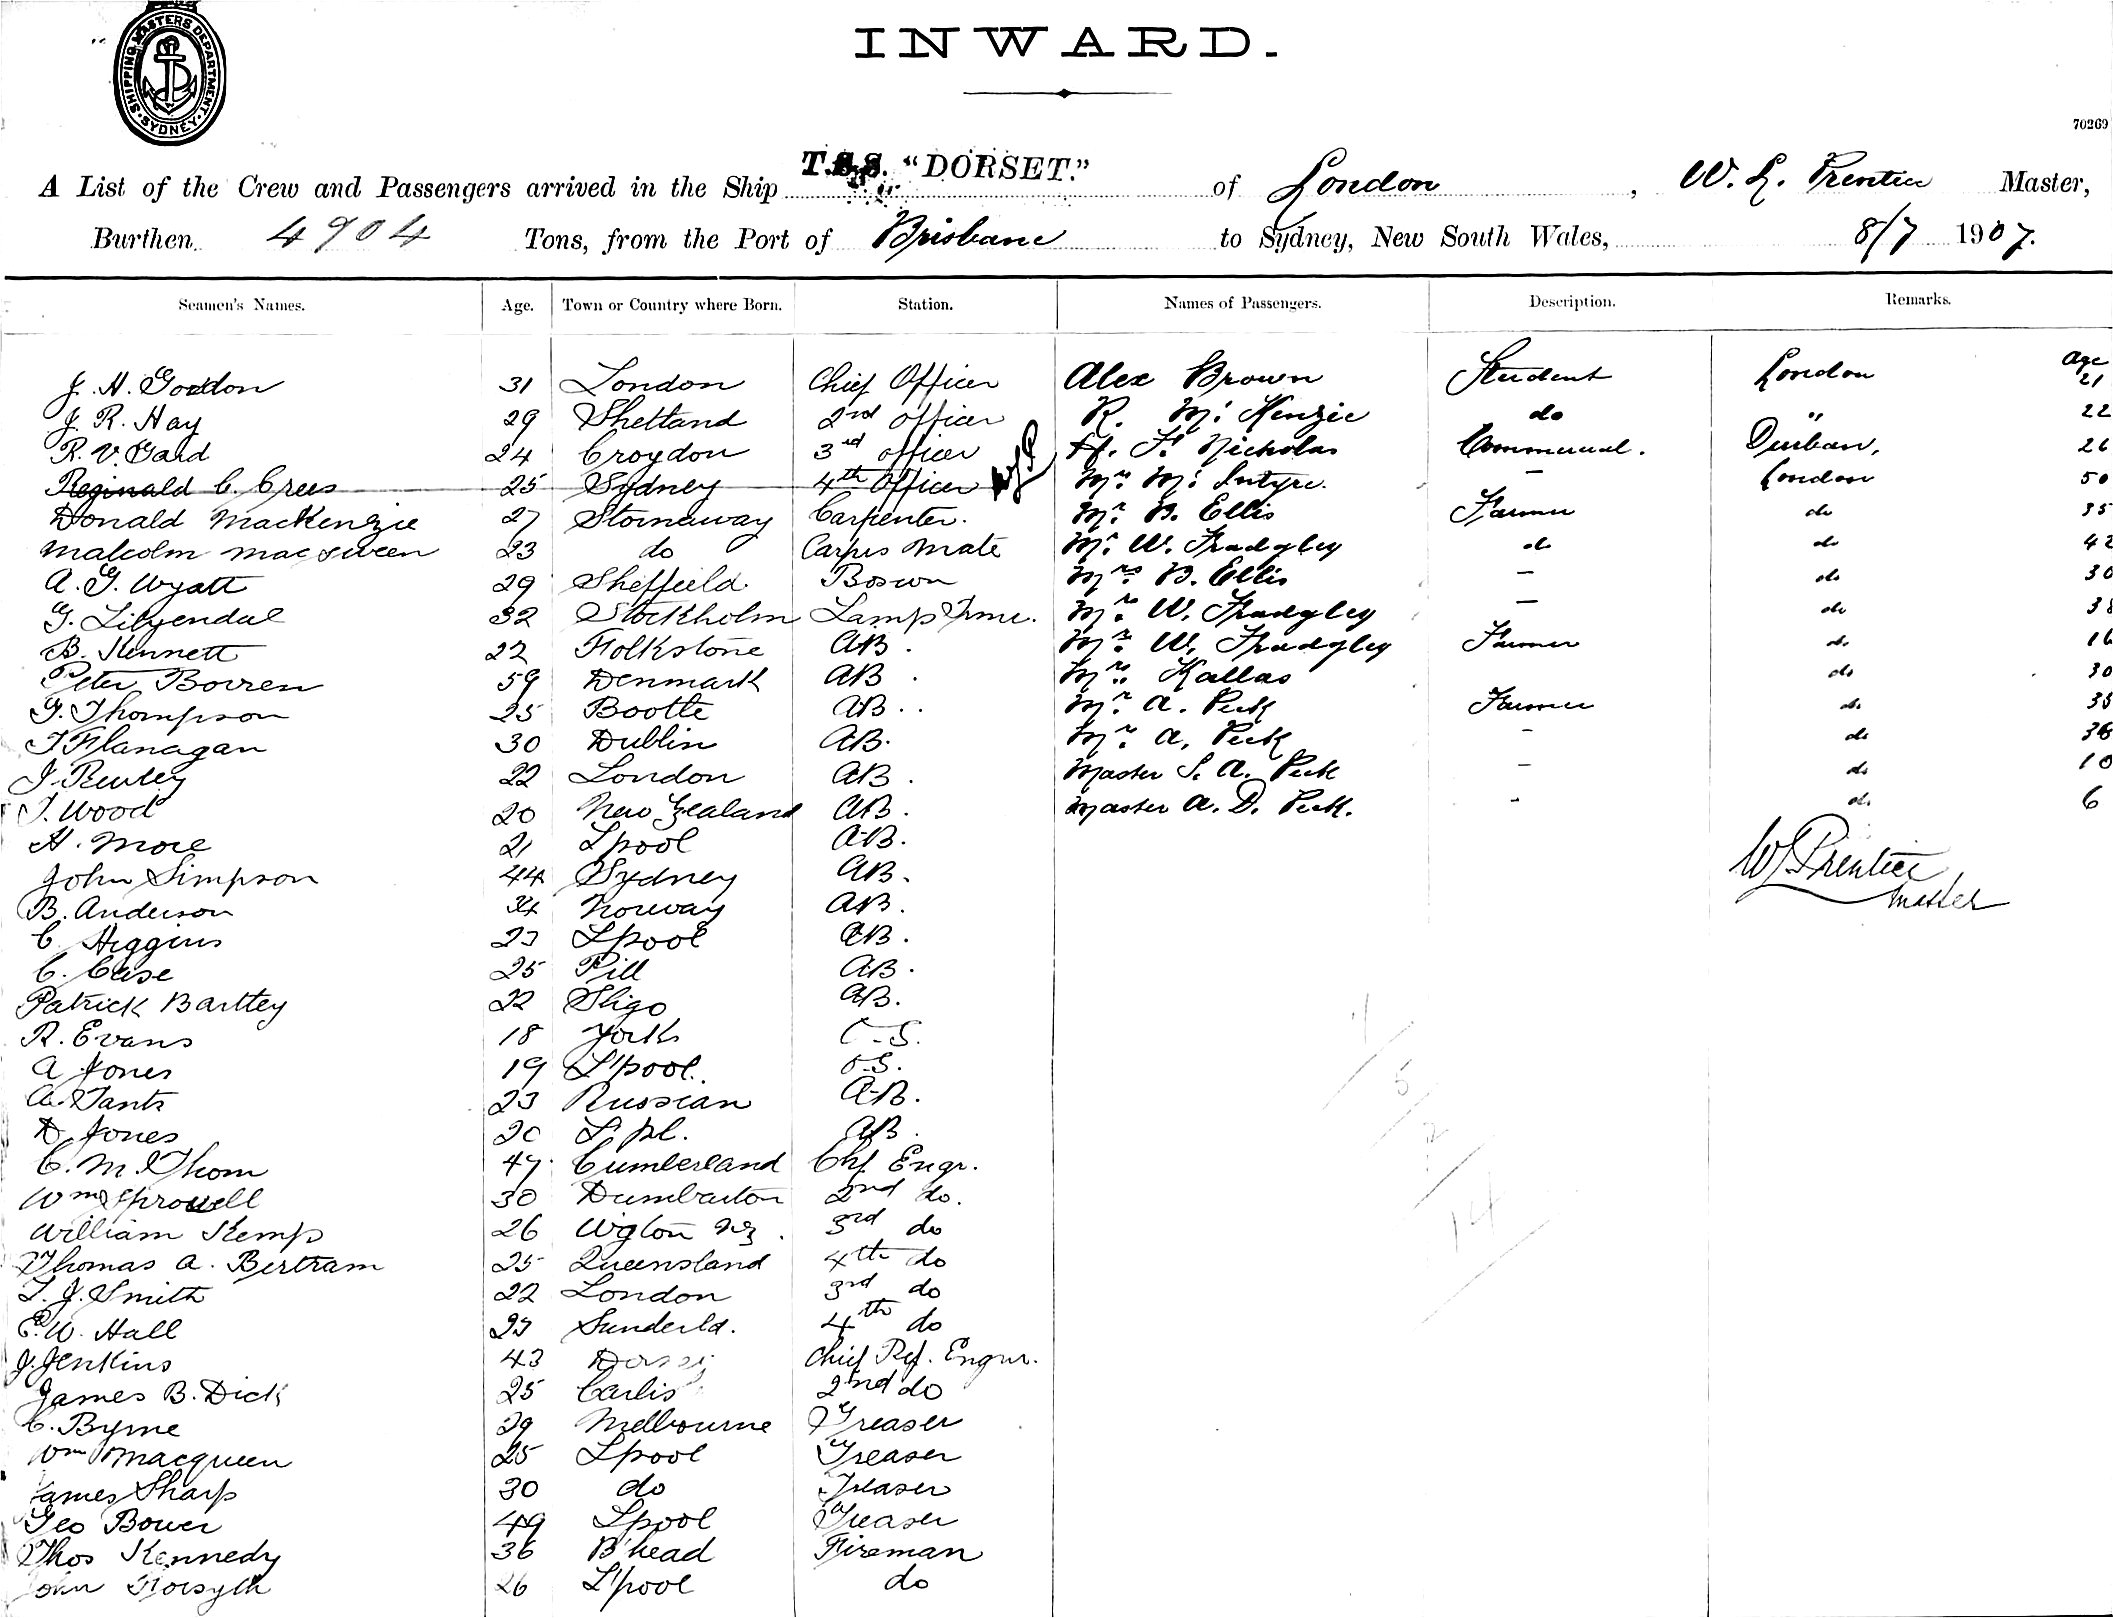 SHIPPING MASTERS DEPARTMENT SYDNEY
INWARD.
70269
A List of the Crew and Passengers arrived in the Ship T.S.S. "DORSET." of London, W. L. Prentice Master,
Burthen 4904 Tons, from the Port of Brisbane to Sydney, New South Wales, 8/7 1907.
Seamen's Names. Age. Town or Country where Born. Station. Names of Passengers. Description. Remarks.
Age
J. H. Gordon 31 London Chief Officer Alex Brown Student London 21
J. R. Hay 29 Shetland 2nd officer R. Mc Kenzie do " 22
R. V. Gard 24 Croydon 3rd officer H. F. Nicholas Commercial. Durban, 26
Reginald C. Crees 25 Sydney 4th Officer Mr. Mc Intyre. – London 50
Donald MacKenzie 27 Stornaway Carpenter. Mr. B. Ellis Farmer do 35
Malcolm Macsween 23 do Carprs Mate Mr. W. Fradgley do do 42
A. G. Wyatt 29 Sheffield Bosun Mrs. B. Ellis – do 30
G. Lilyendal 32 Stockholm Lamp Trmr. Mrs. W. Fradgley – do 38
B. Kennett 22 Folkstone AB. Mr. W. Fradgley Farmer do. 16
Peter Borren 59 Denmark AB. Mrs. Kallas do 30
G. Thompson 25 Bootle AB.. Mr. A. Peck Farmer do. 35
T Flanagan 30 Dublin AB. Mrs. A. Peck – do 36
J. 22 London AB. Master S. A. Peck – do 10
T. Wood 20 New Zealand AB. Master A. D. Peck. - do. 6
H. More 21 Lpool A-B.
John Simpson 44 Sydney AB. WL Prentice
B. Anderson 34 Norway AB. Master
C. Higgins 23 Lpool AB.
C. Case 25 Pill AB.
Patrick Bartley 22 Sligo AB.
R. Evans 18 York O-S.
A Jones 19 L'pool. O-S.
A. Tants 23 Russian A-B.
D. Jones 20 L.pl. AB.
C. M. Thom 47 Cumberland Chf Engr.
Wm Sprowell 30 Dumbarton 2nd do.
William Kemp 26 Wgton NZ. 3rd do
Thomas A. Bertram 25 Queensland 4th do
T. J. Smith 22 London 3rd do
E. W. Hall 23 Sunderld. 4th do
J. Jenkins 43 Chief Ref. Engnr.
James B. Dick 25 Carlis 2nd do
C. Byrne 29 Melbourne Greaser
Wm Macqueen 25 Lpool Greaser
James Sharp 30 do Greaser
Geo Bower 49 Lpool Greaser
Thos Kennedy 36 B'head Fireman
John Forsyth 26 L'pool do
1
5
2
14